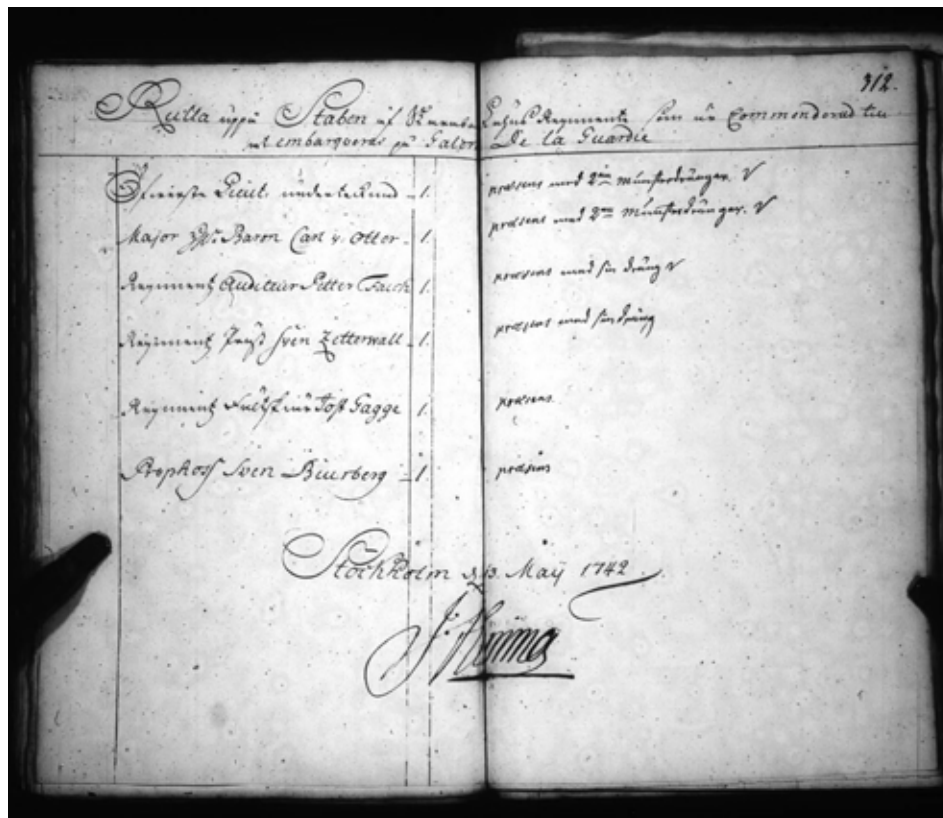 312.
Rulla uppå Staben af Skaraborgs Lähns Regimente som är Commenderad till
at embarqveras på Galern De la Guardie
Öfwerste Lieut. undertecknad 1. præsens med 2ne Munsterdrängar. V
Major H. Baron Carl v. Otter 1. præsens med 2ne Munsterdrängar. V
Regiments Auditeur Petter Falck 1. præsens med sin dräng V
Regiments Präst Sven Zetterwall 1. præsens med sin dräng
Regiments Fältskiär Tost Gagge 1. præsens.
Prophoss Sven Biurberg 1. præsens
Stockholm d. 13. Maÿ 1742.